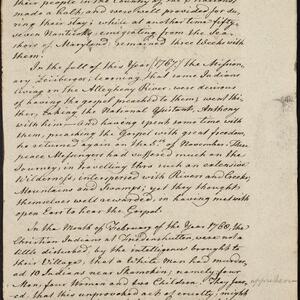 their people in the Country of the
made a halt, and were provided for du-
ring their stay; while at another time fifty
seven Nanticoks, emigrating from the Sea-
shore of Maryland, remained three Weeks with
them.
In the fall of this Year (1767) the Mission-
ary Zeisberger, learning that some Indians
living on the Allegheny River, were desirous
of having the gospel preached to them; went thi-
ther, taking the National Assistant, Anthony
with him: and having spent some time with
them, preaching the Gospel with great freedom,
he returned again on the 5th of November. Those
peace Messengers had suffered much on the
Journey, in travelling thro such an extensive
Wilderness, interspersed with Rivers and Creeks,
Mountains and Swamps; yet they thought
themselves well rewarded, in having met with
open Ears to hear the Gospel.
In the Month of February of the Year 1768, the
Christian Indians at Friedenshütten were not a
little disturbed, by the intelligence brought to
their Village: that a White Man had murder-
ed 10 Indians near Shamokin; namely four
Men, four Women and two Children. They fear-
ed that this unprovoked act of cruelty, might
apprehen